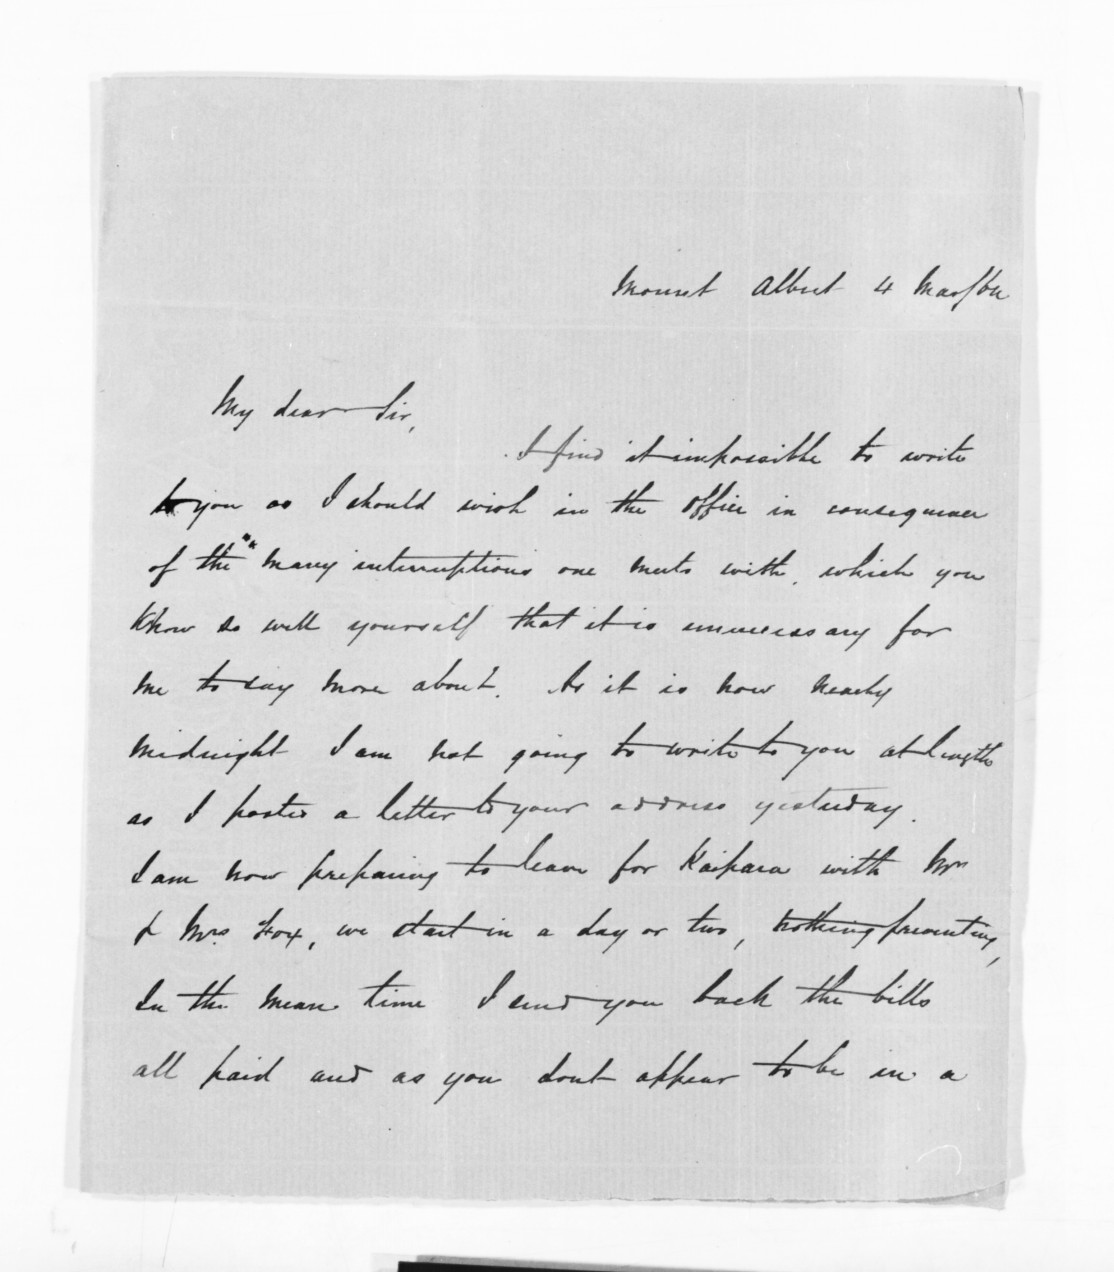 Mount Albert 4 Mar/62
My dear Sir,
I find it impossible to write
to you as I should wish in the Office in consequence
of the many interruptions one meets with, which you
know so well yourself that it is unnecessary for
me to say more about. As it is now nearly
midnight I am not going to write to you at length
as I posted a letter to your address yesterday.
I am now preparing to leave for Kaipara with Mr
& Mrs. Fox, we start in a day or two, nothing preventing,
In the mean time I send you back the bills
all paid and as you dont appear to be in a